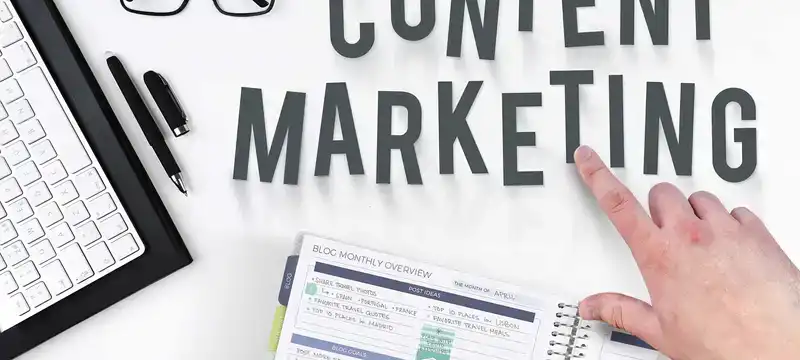 CONTENT
MARKETING
BLOG MONTHLY OVERVIEW
THE MONTH OF APRIL
POST IDEAS
BLOG
• SHARE TRAVEL PHOTOS
SPAIN • PORTUGAL • FRANCE
• FAVORITE TRAVEL QUOTES
• TOP 10 PLACES IN MADRID
• TOP 10 PLACES IN LISBON
• FAVORITE TRAVEL MEALS
BLOG GOALS